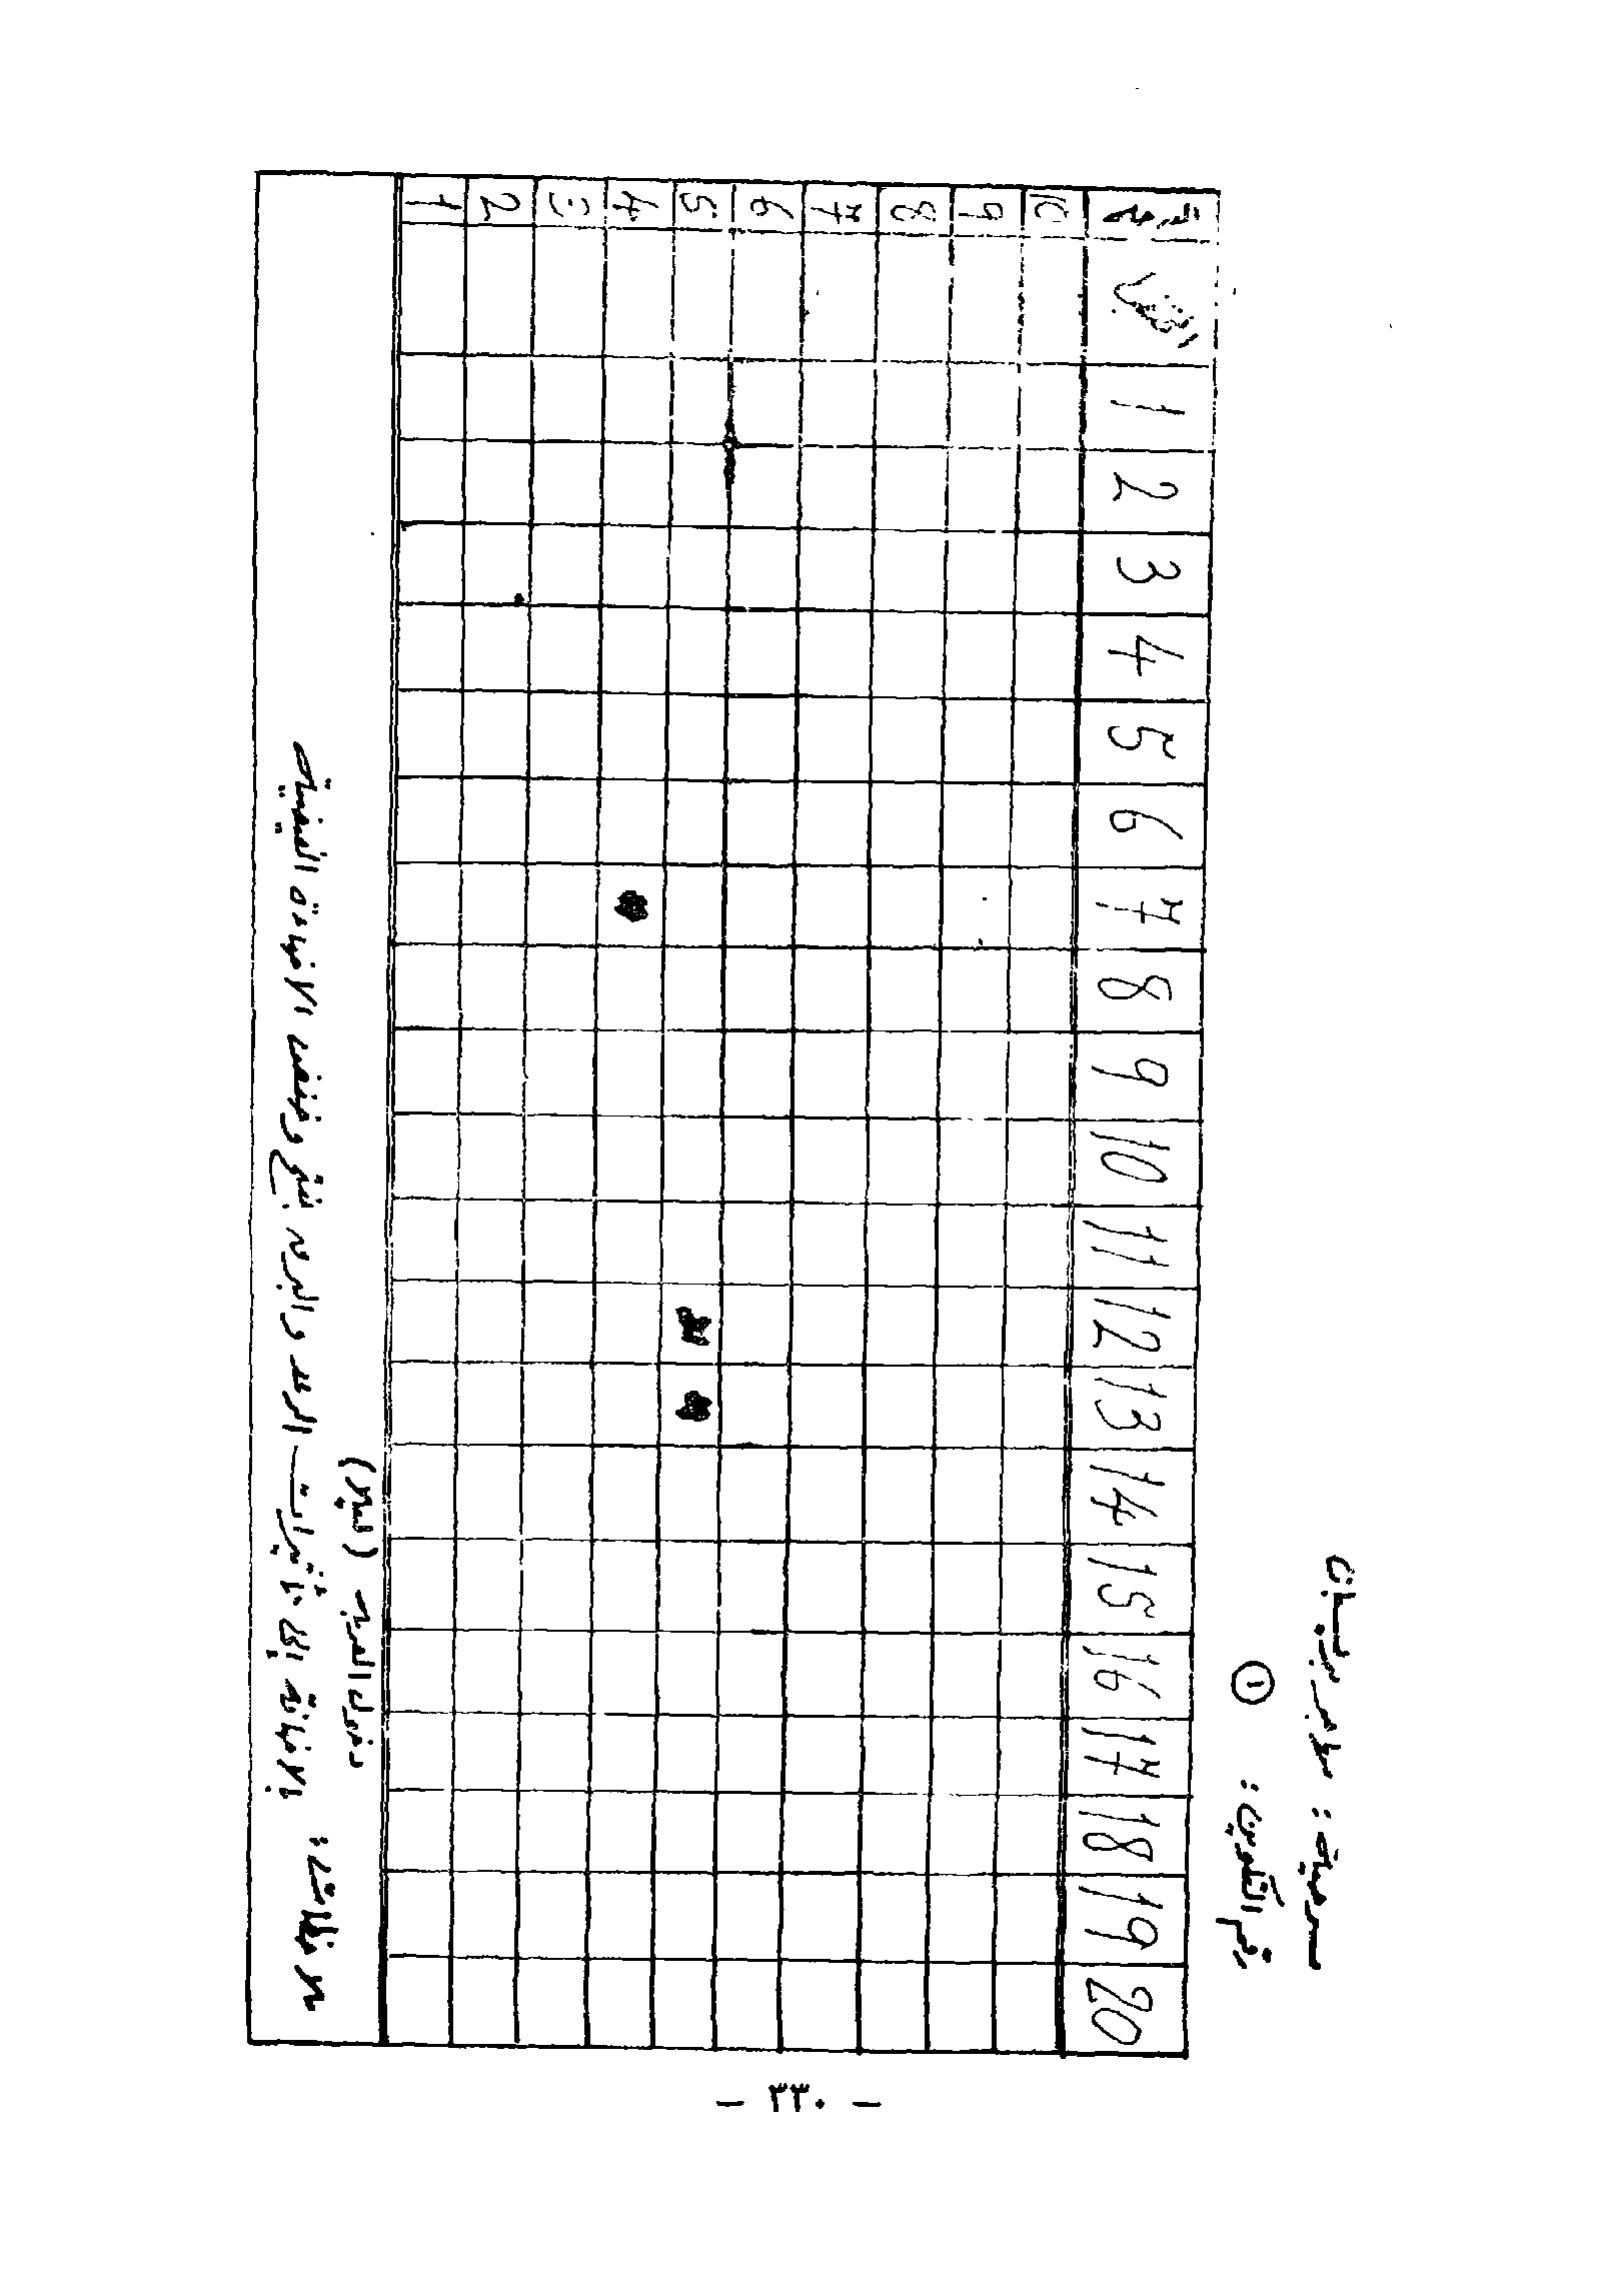 مسرحية : سطر من بستان
رقم التكوين : ①
الدرجة
1 2 3 4 5 6 7 8 9 10 11 12 13 14 15 16 17 18 19 20
10
9
8
7
6
5
4
3
2
1
دخول العرب ( ليلا )
ملاحظات : بالاضافة إلى تأثيرات الرعد والبرق بفتح وخفض الاضاءة الفيضية
— ٣٣٠ —